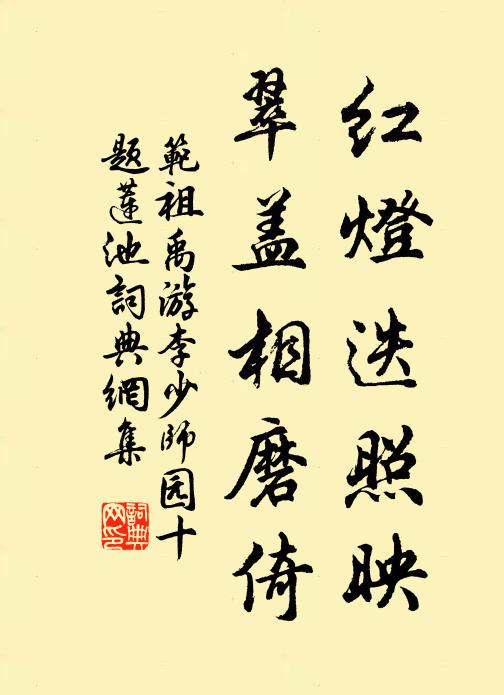 红燈迭照映
翠盖相磨倚
範祖禹游李少師园十
題蓮池詞典網集
詞典网印